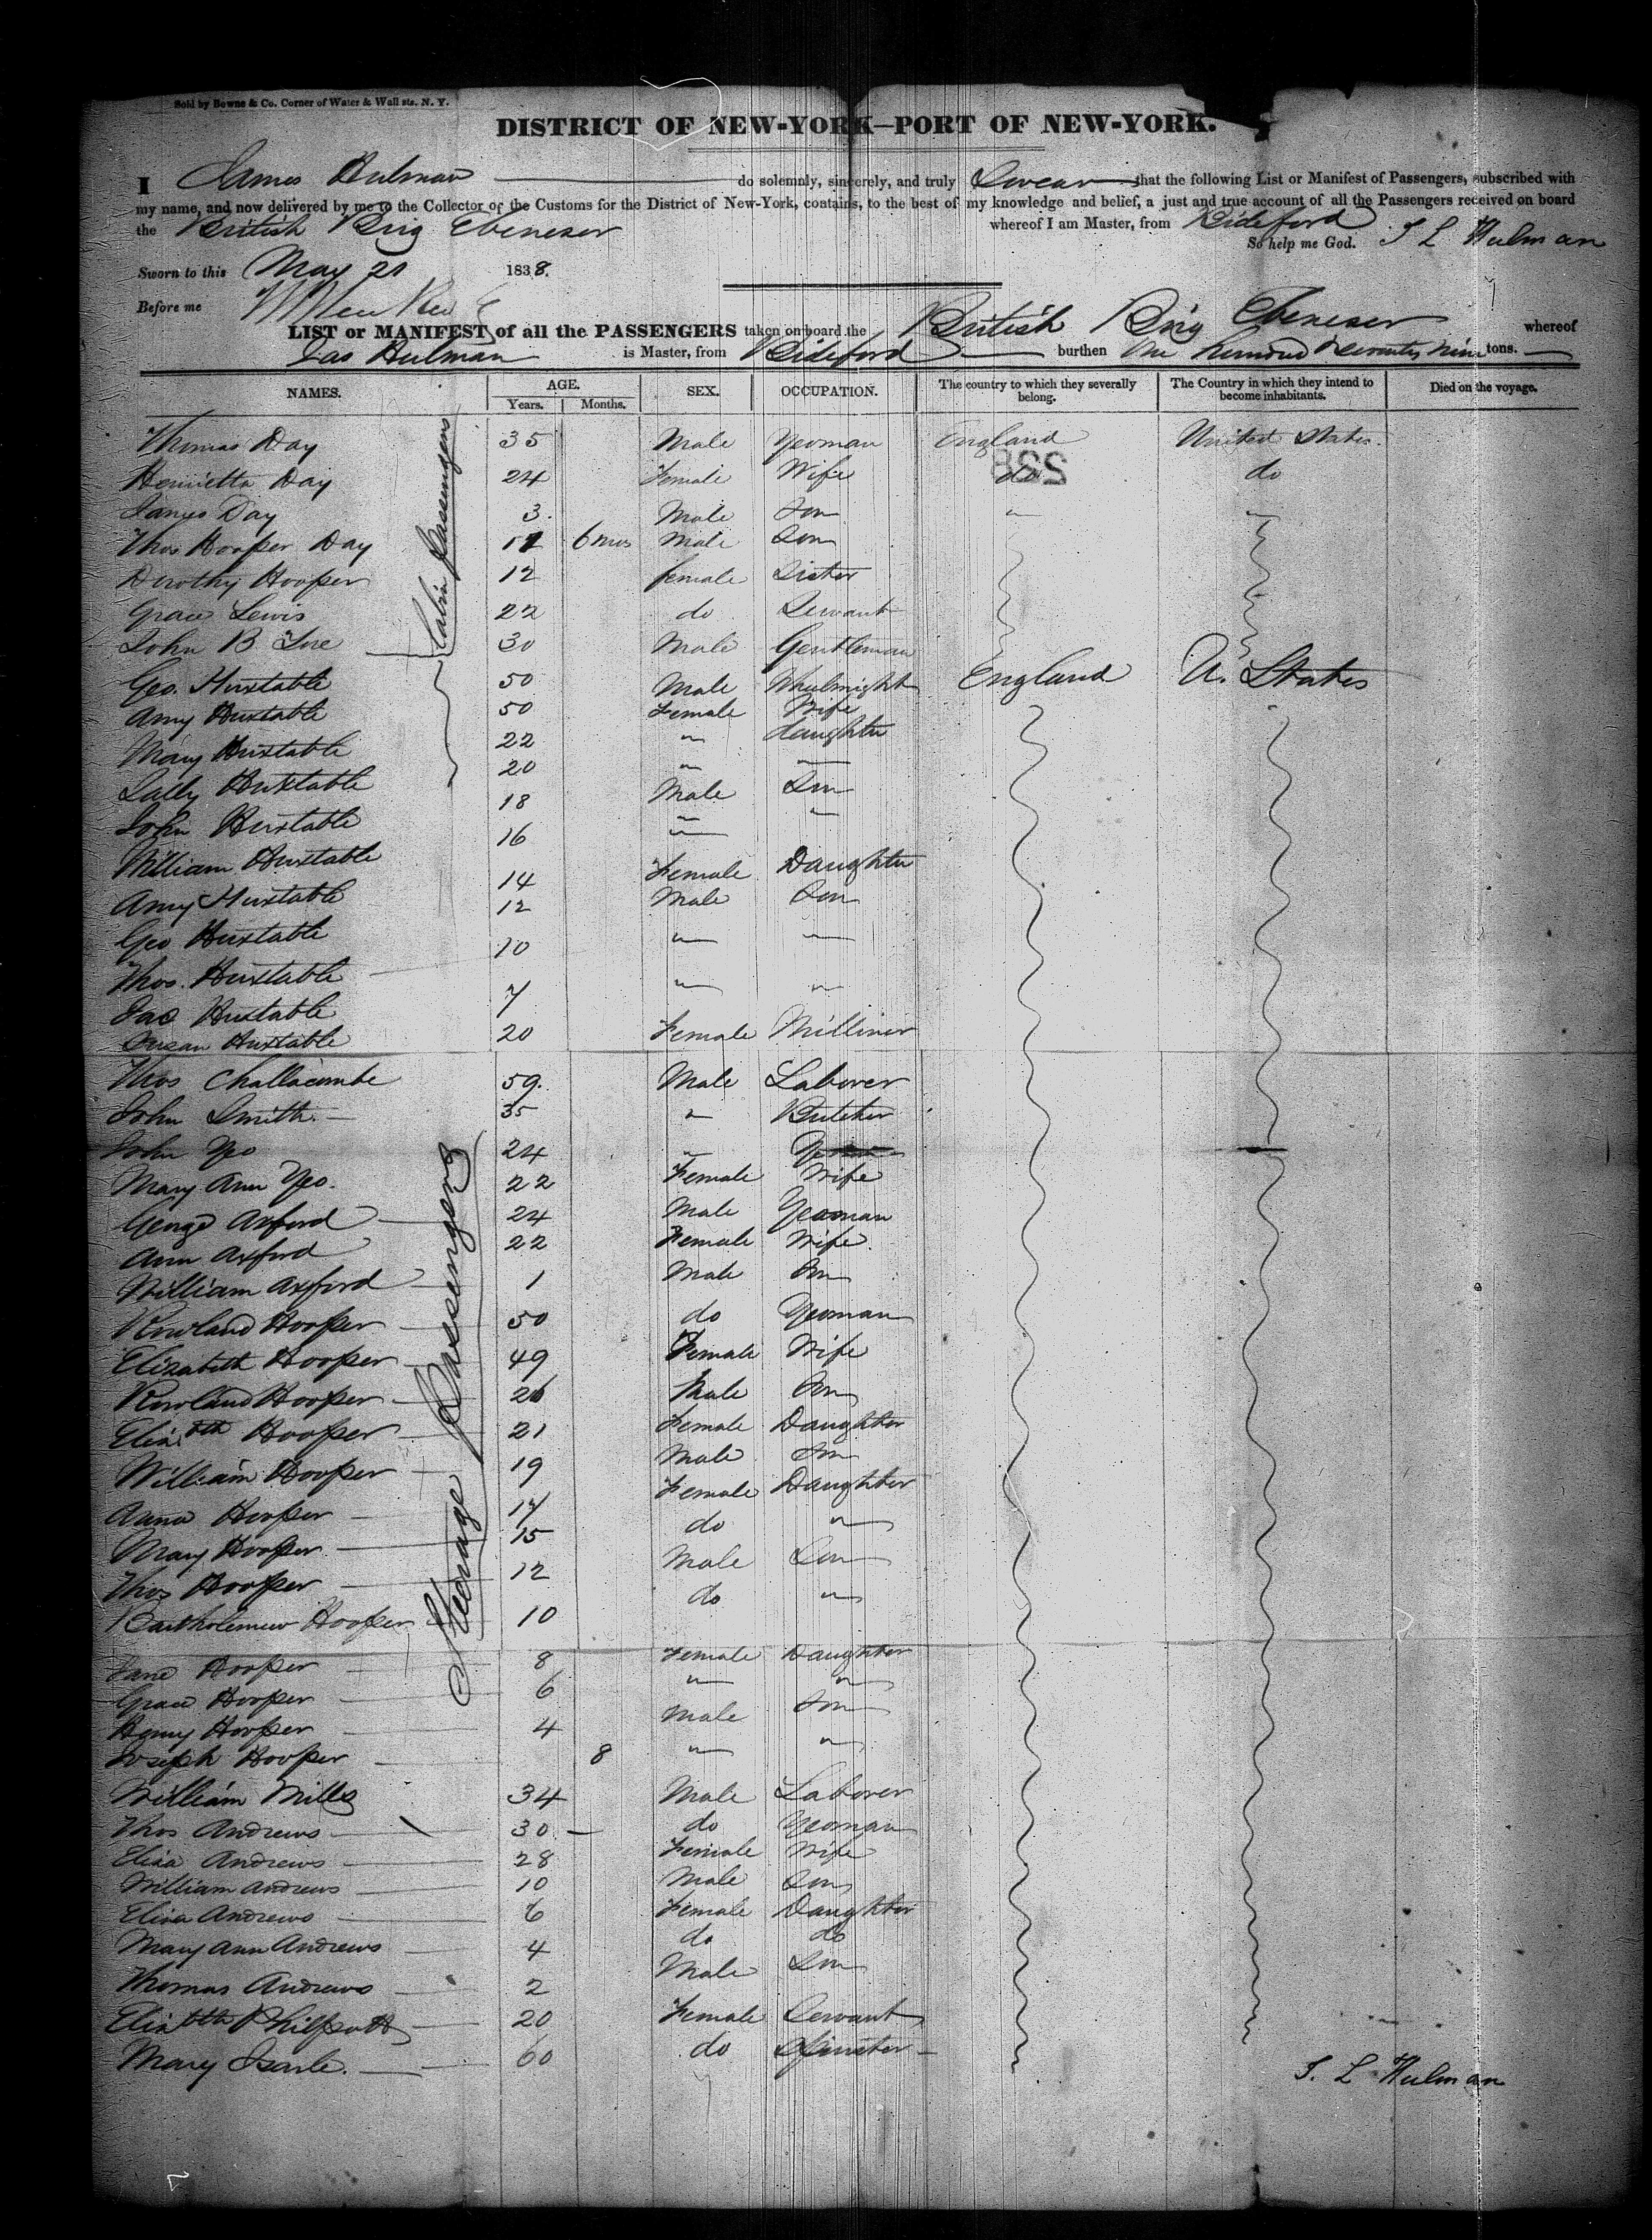 Sold by Bowne & Co. Corner of Water & Wall sts. N. Y.
DISTRICT OF NEW-YORK—PORT OF NEW-YORK.
I James Hulman do solemnly, sincerely, and truly Swear that the following List or Manifest of Passengers, subscribed with
my name, and now delivered by me to the Collector of the Customs for the District of New-York, contains, to the best of my knowledge and belief, a just and true account of all the Passengers received on board
the British Brig Ebenezer whereof I am Master, from Bideford
So help me God. J L Hulman
Sworn to this May 21 1838.
Before me
LIST or MANIFEST of all the PASSENGERS taken on board the British Brig Ebenezer whereof
Jas Hulman is Master, from Bideford burthen One Hundred & Seventy Nine tons.
NAMES. AGE. Years. Months. SEX. OCCUPATION. The country to which they severally belong. The Country in which they intend to become inhabitants. Died on the voyage.
Cabin Passengers
Thomas Day 35 Male Yeoman England United States.
Henrietta Day 24 Female Wife do do
James Day 3. Male Son "
Thos Hooper Day 6 mos Male Son
Dorothy Hooper 12 female Sister
Grace Lewis 22 do Servant
John B 30 Male Gentleman
Geo. Huxtable 50 Male Wheelwright England U. States
Amy Huxtable 50 Female Wife
Mary Huxtable 22 " daughter
Sally Huxtable 20 " "
John Huxtable 18 Male Son
William Huxtable 16 " "
Amy Huxtable 14 Female Daughter
Geo Huxtable 12 Male Son
Thos. Huxtable 10 " "
Jas Huxtable 7 " "
Susan Huxtable 20 Female Milliner
Thos Challacombe 59. Male Laborer
John Smith. 35 " Butcher
John Yeo 24 "
Mary Ann Yeo. 22 Female Wife
Steerage Passengers
George Axford 24 Male Yeoman
Ann Axford 22 Female Wife
William Axford 1 Male Son
Rowland Hooper 50 do Yeoman
Elizabeth Hooper 49 Female Wife
Rowland Hooper 26 Male Son
Elizabth Hooper 21 Female Daughter
William Hooper 19 Male Son
Anna Hooper 17 Female Daughter
Mary Hooper 15 do "
Thos Hooper 12 Male Son
Bartholemew Hooper 10 do "
Jane Hooper 8 Female Daughter
Grace Hooper 6 " "
Henry Hooper 4 Male Son
Joseph Hooper 8 " "
William Mills 34 Male Laborer
Thos Andrews 30 do Yeoman
Eliza Andrews 28 Female Wife
William Andrews 10 Male Son
Eliza Andrews 6 Female Daughter
Mary Ann Andrews 4 do do
Thomas Andrews 2 Male Son
Elizabth Philpott 20 Female Servant
Mary Isarle. 60 do Spinster
J. L Hulman